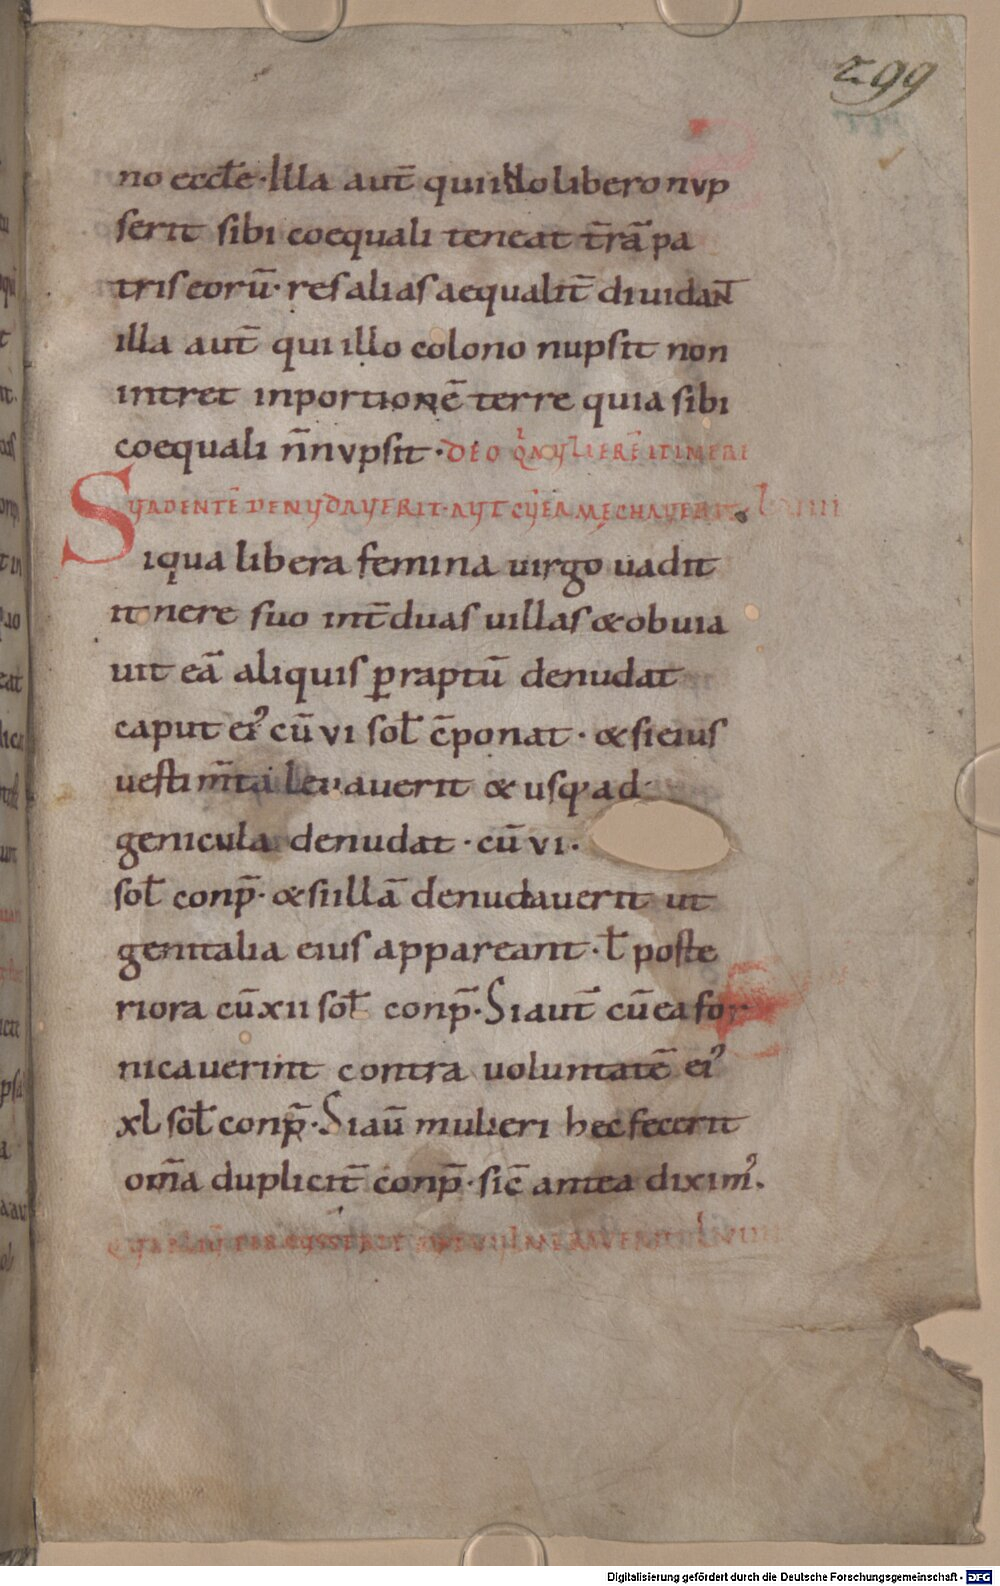 299
no eccłe · Illa aut̄ qui illo libero nvp
serit sibi coequali teneat t̄rā pa
tris eorū · res alias aequalit̄ diuidant
illa aut̄ qui illo colono nupsit non
intret inportionē terre quia sibi
coequali n̄ nvpsit · DEO QI MVLIERĒ ITINERE
SVADENTĒ DENVDAVERIT · AVT CV̄ EA MECHAVERIT
Siqua libera femina uirgo uadit
itinere suo int̄ duas uillas & obuia
uit eā aliquis praptū denudat
caput ei' cū vi sol c̄ponat · & si eius
uestim̄ta leuauerit & usq' ad
genicula denudat · cū vi ·
sol conp̄ · & si illā denudauerit ut
genitalia eius appareant · ł poste
riora cū xii sol conp̄ · Si aut̄ cū ea for
nicauerint contra voluntatē ei'
xl sol conp̄ · Si aū mulieri hec fecerit
om̄a duplicit̄ conp̄ · sic̄ antea dixim'.
Digitalisierung gefördert durch die Deutsche Forschungsgemeinschaft - DFG